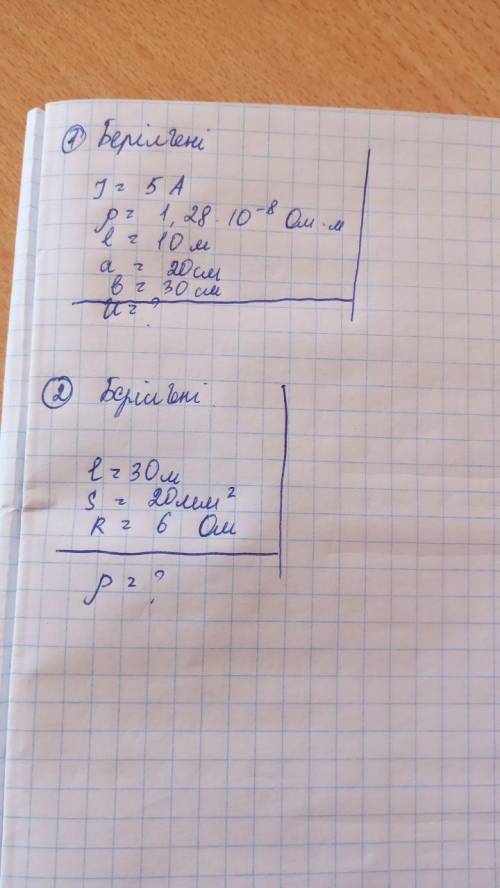 ① Берілгені
J = 5 А
ρ = 1,28 · 10⁻⁸ Ом · м
l = 10 м
a = 20 см
b = 30 см
U = ?
② Берілгені
l = 30 м
S = 20 мм²
R = 6 Ом
ρ = ?